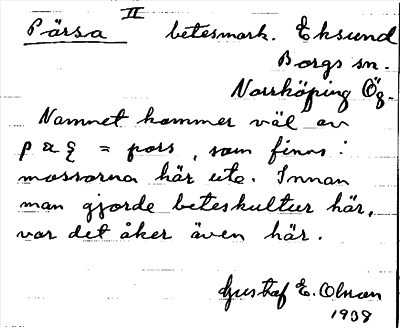 II
Pärsa betesmark. Eksund
Borgs sn.
Norrköping Ög.
Namnet kommer väl av
= pors, som finns i
mossarna här ute. Innan
man gjorde beteskultur här,
var det åker även här.
Gustaf E. Olman
1938